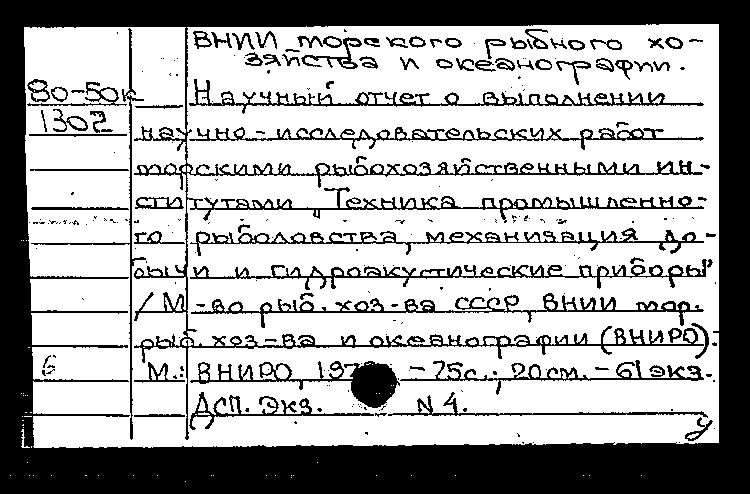 ВНИИ морского рыбного хо-
зяйства и океанографии.
80-50к Научный отчет о выполнении
1302 научно-исследовательских работ
морскими рыбохозяйственными ин-
ститутами "Техника промышленно-
го рыболовства, механизация до-
бычи и гидроакустические приборы"
/ М-во рыб. хоз-ва СССР, ВНИИ мор.
рыб. хоз-ва и океанографии (ВНИРО).-
б М.: ВНИРО, - 75с.; 20см. - 61 экз.
ДСП. Экз. N 4.
у